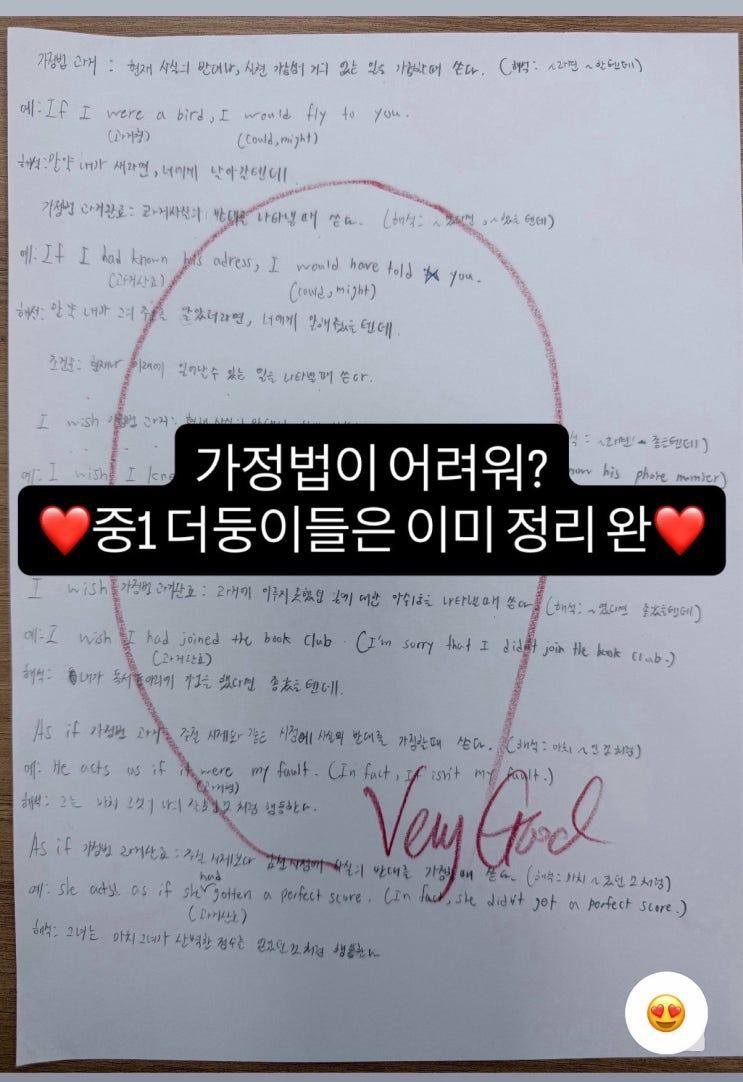 가정법 과거 : 현재 사실의 반대나, 실현 가능성이 거의 없는 일을 가정할때 쓴다. (해석: ~라면 ~할텐데)
예: If I were a bird, I would fly to you.
(과거형) (could, might)
해석: 만약 내가 새라면, 너에게 날아갈텐데
가정법 과거완료: 과거사실의 반대를 나타낼 때 쓴다. (해석: ~했다면, ~했을 텐데)
예: If I had known his adress, I would have told you.
(과거완료) (could, might)
해석: 만약 내가 그의 주소를 알았더라면, 너에게 말해줬을텐데.
조건문: 현재나 미래에 일어날수 있는 일을 나타낼때 쓴다.
I wish 가정법 과거: 현재 사실의 ~라면 좋을텐데)
가정법이 어려워?
예: I wish I his phone
❤️중1 더둥이들은 이미 정리 완❤️
I wish 가정법 과거완료: 과거에 이루지 못했던 일에 대한 아쉬움을 나타낼때 쓴다. (해석: ~했다면 좋았을텐데)
예: I wish I had joined the book club. (I'm sorry that I didn't join the book club.)
(과거완료)
해석: 내가 독서 동아리에 가입을 했다면 좋았을텐데.
As if 가정법 과거: 주절 시제와 같은 시점에 사실의 반대를 가정할때 쓴다. (해석: 마치 ~인 것처럼)
예: He acts as if it were my fault. (In fact, It isn't my fault.)
(과거형)
해석: 그는 마치 그것이 나의 잘못인것 처럼 행동한다.
Very Good
As if 가정법 과거완료: 주절 시제보다 앞선시점에 사실의 반대를 가정할 때 쓴다. (해석: 마치 ~였던 것처럼)
예: she acts as if she had gotten a perfect score. (In fact, she didn't get a perfect score.)
(과거완료)
해석: 그녀는 마치 그녀가 완벽한 점수를 얻었던것처럼 행동한다.